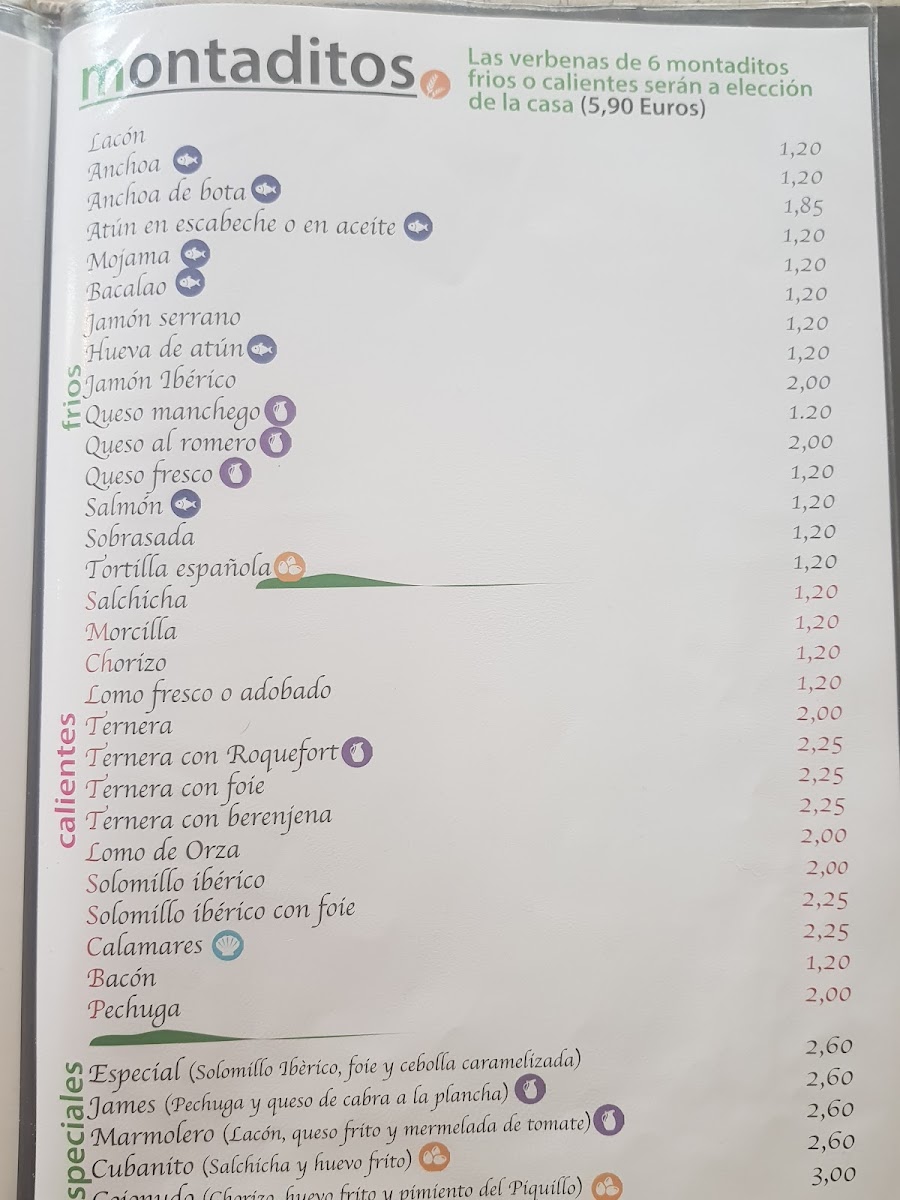 montaditos
Las verbenas de 6 montaditos
frios o calientes serán a elección
de la casa (5,90 Euros)
frios
Lacón 1,20
Anchoa 1,20
Anchoa de bota 1,85
Atún en escabeche o en aceite 1,20
Mojama 1,20
Bacalao 1,20
Jamón serrano 1,20
Hueva de atún 1,20
Jamón Ibérico 2,00
Queso manchego 1.20
Queso al romero 2,00
Queso fresco 1,20
Salmón 1,20
Sobrasada 1,20
Tortilla española 1,20
calientes
Salchicha 1,20
Morcilla 1,20
Chorizo 1,20
Lomo fresco o adobado 1,20
Ternera 2,00
Ternera con Roquefort 2,25
Ternera con foie 2,25
Ternera con berenjena 2,25
Lomo de Orza 2,00
Solomillo ibérico 2,00
Solomillo ibérico con foie 2,25
Calamares 2,25
Bacón 1,20
Pechuga 2,00
speciales
Especial (Solomillo Ibèrico, foie y cebolla caramelizada) 2,60
James (Pechuga y queso de cabra a la plancha) 2,60
Marmolero (Lacón, queso frito y mermelada de tomate) 2,60
Cubanito (Salchicha y huevo frito) 2,60
(Chorizo, huevo frito y pimiento del Piquillo) 3,00